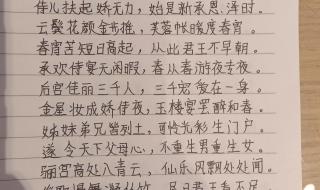 侍儿扶起娇无力，始是新承恩泽时。
云鬓花颜金步摇，芙蓉帐暖度春宵。
春宵苦短日高起，从此君王不早朝。
承欢侍宴无闲暇，春从春游夜专夜。
后宫佳丽三千人，三千宠爱在一身。
金屋妆成娇侍夜，玉楼宴罢醉和春。
姊妹弟兄皆列土，可怜光彩生门户。
遂令天下父母心，不重生男重生女。
骊宫高处入青云，仙乐风飘处处闻。